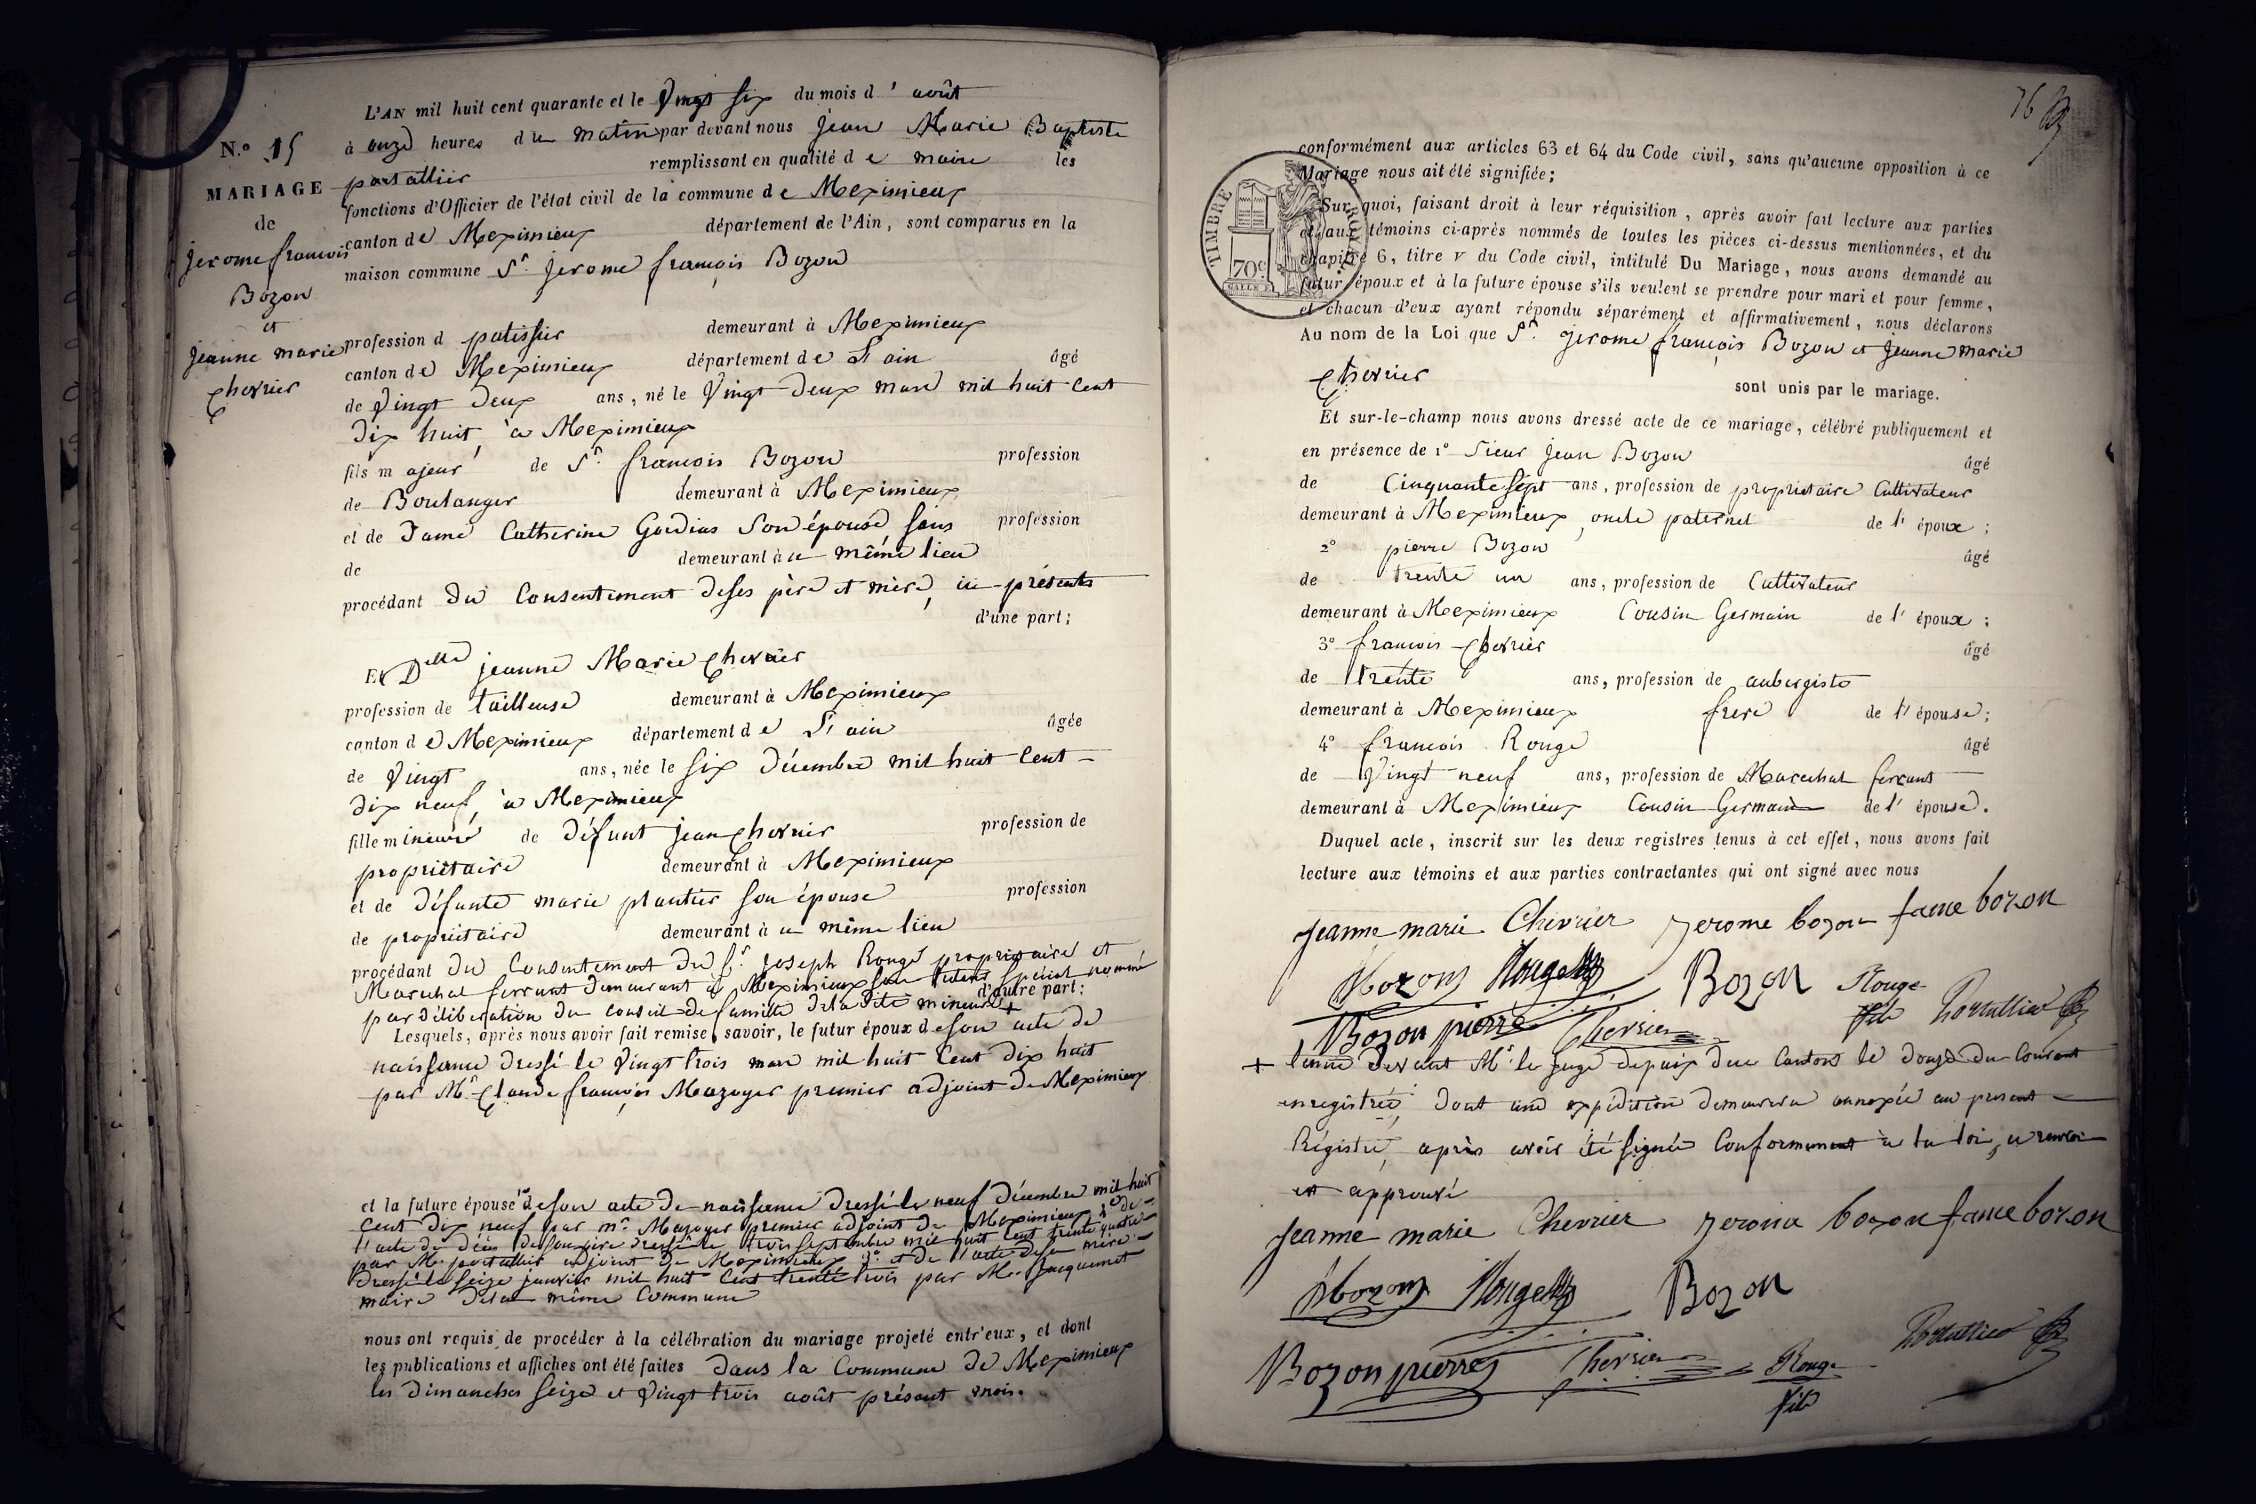 L'AN mil huit cent quarante et le Vingt Six du mois d' août
N.º 15
à onze heures du matin par devant nous Jean Marie Baptiste
portallier remplissant en qualité de maire les
MARIAGE
fonctions d'Officier de l'état civil de la commune de Meximieux
de
canton de Meximieux département de l'Ain, sont comparus en la
jerome françois
maison commune Sr. Jerome françois Bozon
Bozon
et
jeanne marie
chevrier
profession d patissier demeurant à Meximieux
canton de Meximieux département de L'ain âgé
de Vingt Deux ans, né le Vingt Deux mars mil huit Cent
Dix huit, à Meximieux
fils majeur de Sr. françois Bozon profession
de Boulanger demeurant à Meximieux
et de Dame Catherine Son épouse sans profession
de demeurant au même lieu
procédant Du Consentement de ses père et mère, ici présents
d'une part;
Et Dlle jeanne Marie Chevrier
profession de tailleuse demeurant à Meximieux
canton de Meximieux département de L'ain âgée
de Vingt ans, née le Six Décembre mil huit Cent
Dix neuf, à Meximieux
fille mineure de Défunt jean Chevrier profession de
propriétaire demeurant à Meximieux
et de Défunte marie plantier son épouse profession
de propriétaire demeurant au même lieu
procédant Du Consentement Du Sr. Joseph Rouge propriétaire et
Marechal ferrant Demeurant à Meximieux son tuteur spécial nommé
d'autre part;
par Déliberation du Conseil de famille de la dite mineure +
Lesquels, après nous avoir fait remise, savoir, le futur époux de son acte de
naissance Dressé le Vingt trois mars mil huit Cent Dix huit
par Mr. Claude françois Mazoyer premier adjoint de Meximieux
et la future épouse 1º de son acte de naissance Dressé le neuf Décembre mil huit
Cent Dix neuf par mr. Mazoyer premier adjoint de Meximieux 2º de
l'acte de Décès de son père Dressé le trois Septembre mil huit Cent trente quatre
par Mr. portallier adjoint de Meximieux 3º et de l'acte de sa mère
Dressé le Seize janvier mil huit Cent trente trois par Mr. Jacquemet
maire de la même Commune
nous ont requis de procéder à la célébration du mariage projeté entr'eux, et dont
les publications et affiches ont été faites Dans la Commune de Meximieux
les Dimanches Seize et Vingt trois août présent mois.
76
conformément aux articles 63 et 64 du Code civil, sans qu'aucune opposition à ce
Mariage nous ait été signifiée;
TIMBRE ROYAL
70c
Sur quoi, faisant droit à leur réquisition, après avoir fait lecture aux parties
et aux témoins ci-après nommés de toutes les pièces ci-dessus mentionnées, et du
chapitre 6, titre v du Code civil, intitulé Du Mariage, nous avons demandé au
futur époux et à la future épouse s'ils veulent se prendre pour mari et pour femme,
et chacun d'eux ayant répondu séparément et affirmativement, nous déclarons
Au nom de la Loi que Sr. Jerome françois Bozon et Jeanne marie
Chevrier sont unis par le mariage.
Et sur-le-champ nous avons dressé acte de ce mariage, célébré publiquement et
en présence de 1º Sieur Jean Bozon âgé
de Cinquante Sept ans, profession de propriétaire Cultivateur
demeurant à Meximieux, oncle paternel de l' époux;
2º pierre Bozon âgé
de trente un ans, profession de Cultivateur
demeurant à Meximieux Cousin Germain de l' époux;
3º françois Chevrier âgé
de trente ans, profession de aubergiste
demeurant à Meximieux frere de l' épouse;
4º françois Rouge âgé
de Vingt neuf ans, profession de Marechal ferrant
demeurant à Meximieux Cousin Germain de l' épouse.
Duquel acte, inscrit sur les deux registres tenus à cet effet, nous avons fait
lecture aux témoins et aux parties contractantes qui ont signé avec nous
Jeanne marie Chevrier Jerome bozon bozon
Bozon Rouge Bozon Rouge fils Portallier
Bozon pierre Chevrier
+ tenue Devant Mr. le juge de paix du Canton le Douze du Courant
enregistrée, dont une expédition Demeurera annexée au present
Régistre, après avoir été signée Conformement à la loi, renvoi
approuvé
Jeanne marie Chevrier Jerome bozon bozon
Bozon Rouge Bozon
Portallier
Bozon pierre Chevrier Rouge
fils